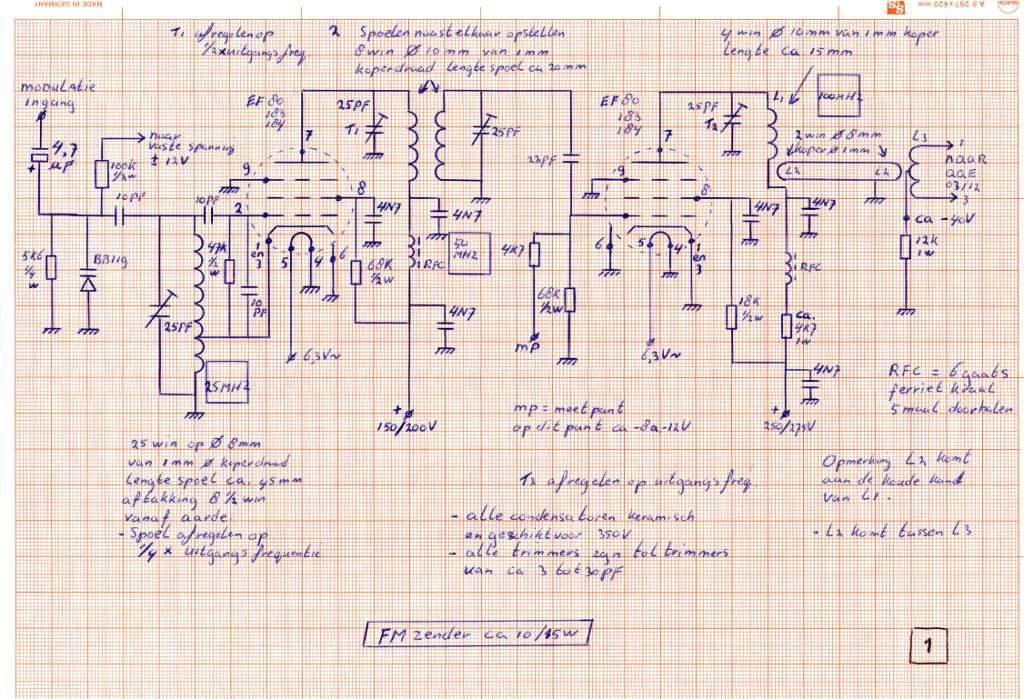 MADE IN GERMANY
A3 297x420 mm
T1 afregelen op
1/2 x uitgangsfreq
2 Spoelen naast elkaar opstellen
8 win Ø 10mm van 1mm
koperdraad lengte spoel ca 20mm
4 win Ø 10mm van 1mm koper
lengte ca 15mm
modulatie
ingang
4,7
µF
+
naar
vaste spanning
± 12V
100k
1/2w
EF80
183
184
25PF
T1
25PF
22PF
EF80
183
184
25PF
T2
L1
100MHZ
2 win Ø 8mm
koper Ø 1mm
L2
L2
L3
1
naar
QQE
03/12
3
10PF
10PF
7
9
2
8
1
en
3
5
4
6
4N7
4N7
50
MHZ
RFC
7
9
8
6
5
4
1
en
3
4N7
4N7
ca -40V
12k
1w
5K6
1/4
w
BB119
25PF
47k
1/2
w
10
PF
68k
1/2w
4N7
4K7
68k
1/2w
mp
18k
1/2w
RFC
ca.
4K7
1w
4N7
25MHZ
6,3V~
6,3V~
+
150/200V
+
250/275V
RFC = 6 gaats
ferriet kraal
5 maal doorhalen
mp = meetpunt
op dit punt ca -8a-12V
25 win op Ø 8mm
van 1mm Ø koperdraad
lengte spoel ca. 45mm
aftakking 8 1/2 win
vanaf aarde
- Spoel afregelen op
1/4 x uitgangsfrequentie
T2 afregelen op uitgangsfreq.
- alle condensatoren keramisch
en geschikt voor 350V
- alle trimmers zyn tol trimmers
van ca 3 tot 30PF
Opmerking L2 komt
aan de koude kant
van L1.
- L2 komt tussen L3
FM zender ca 10/15W
1